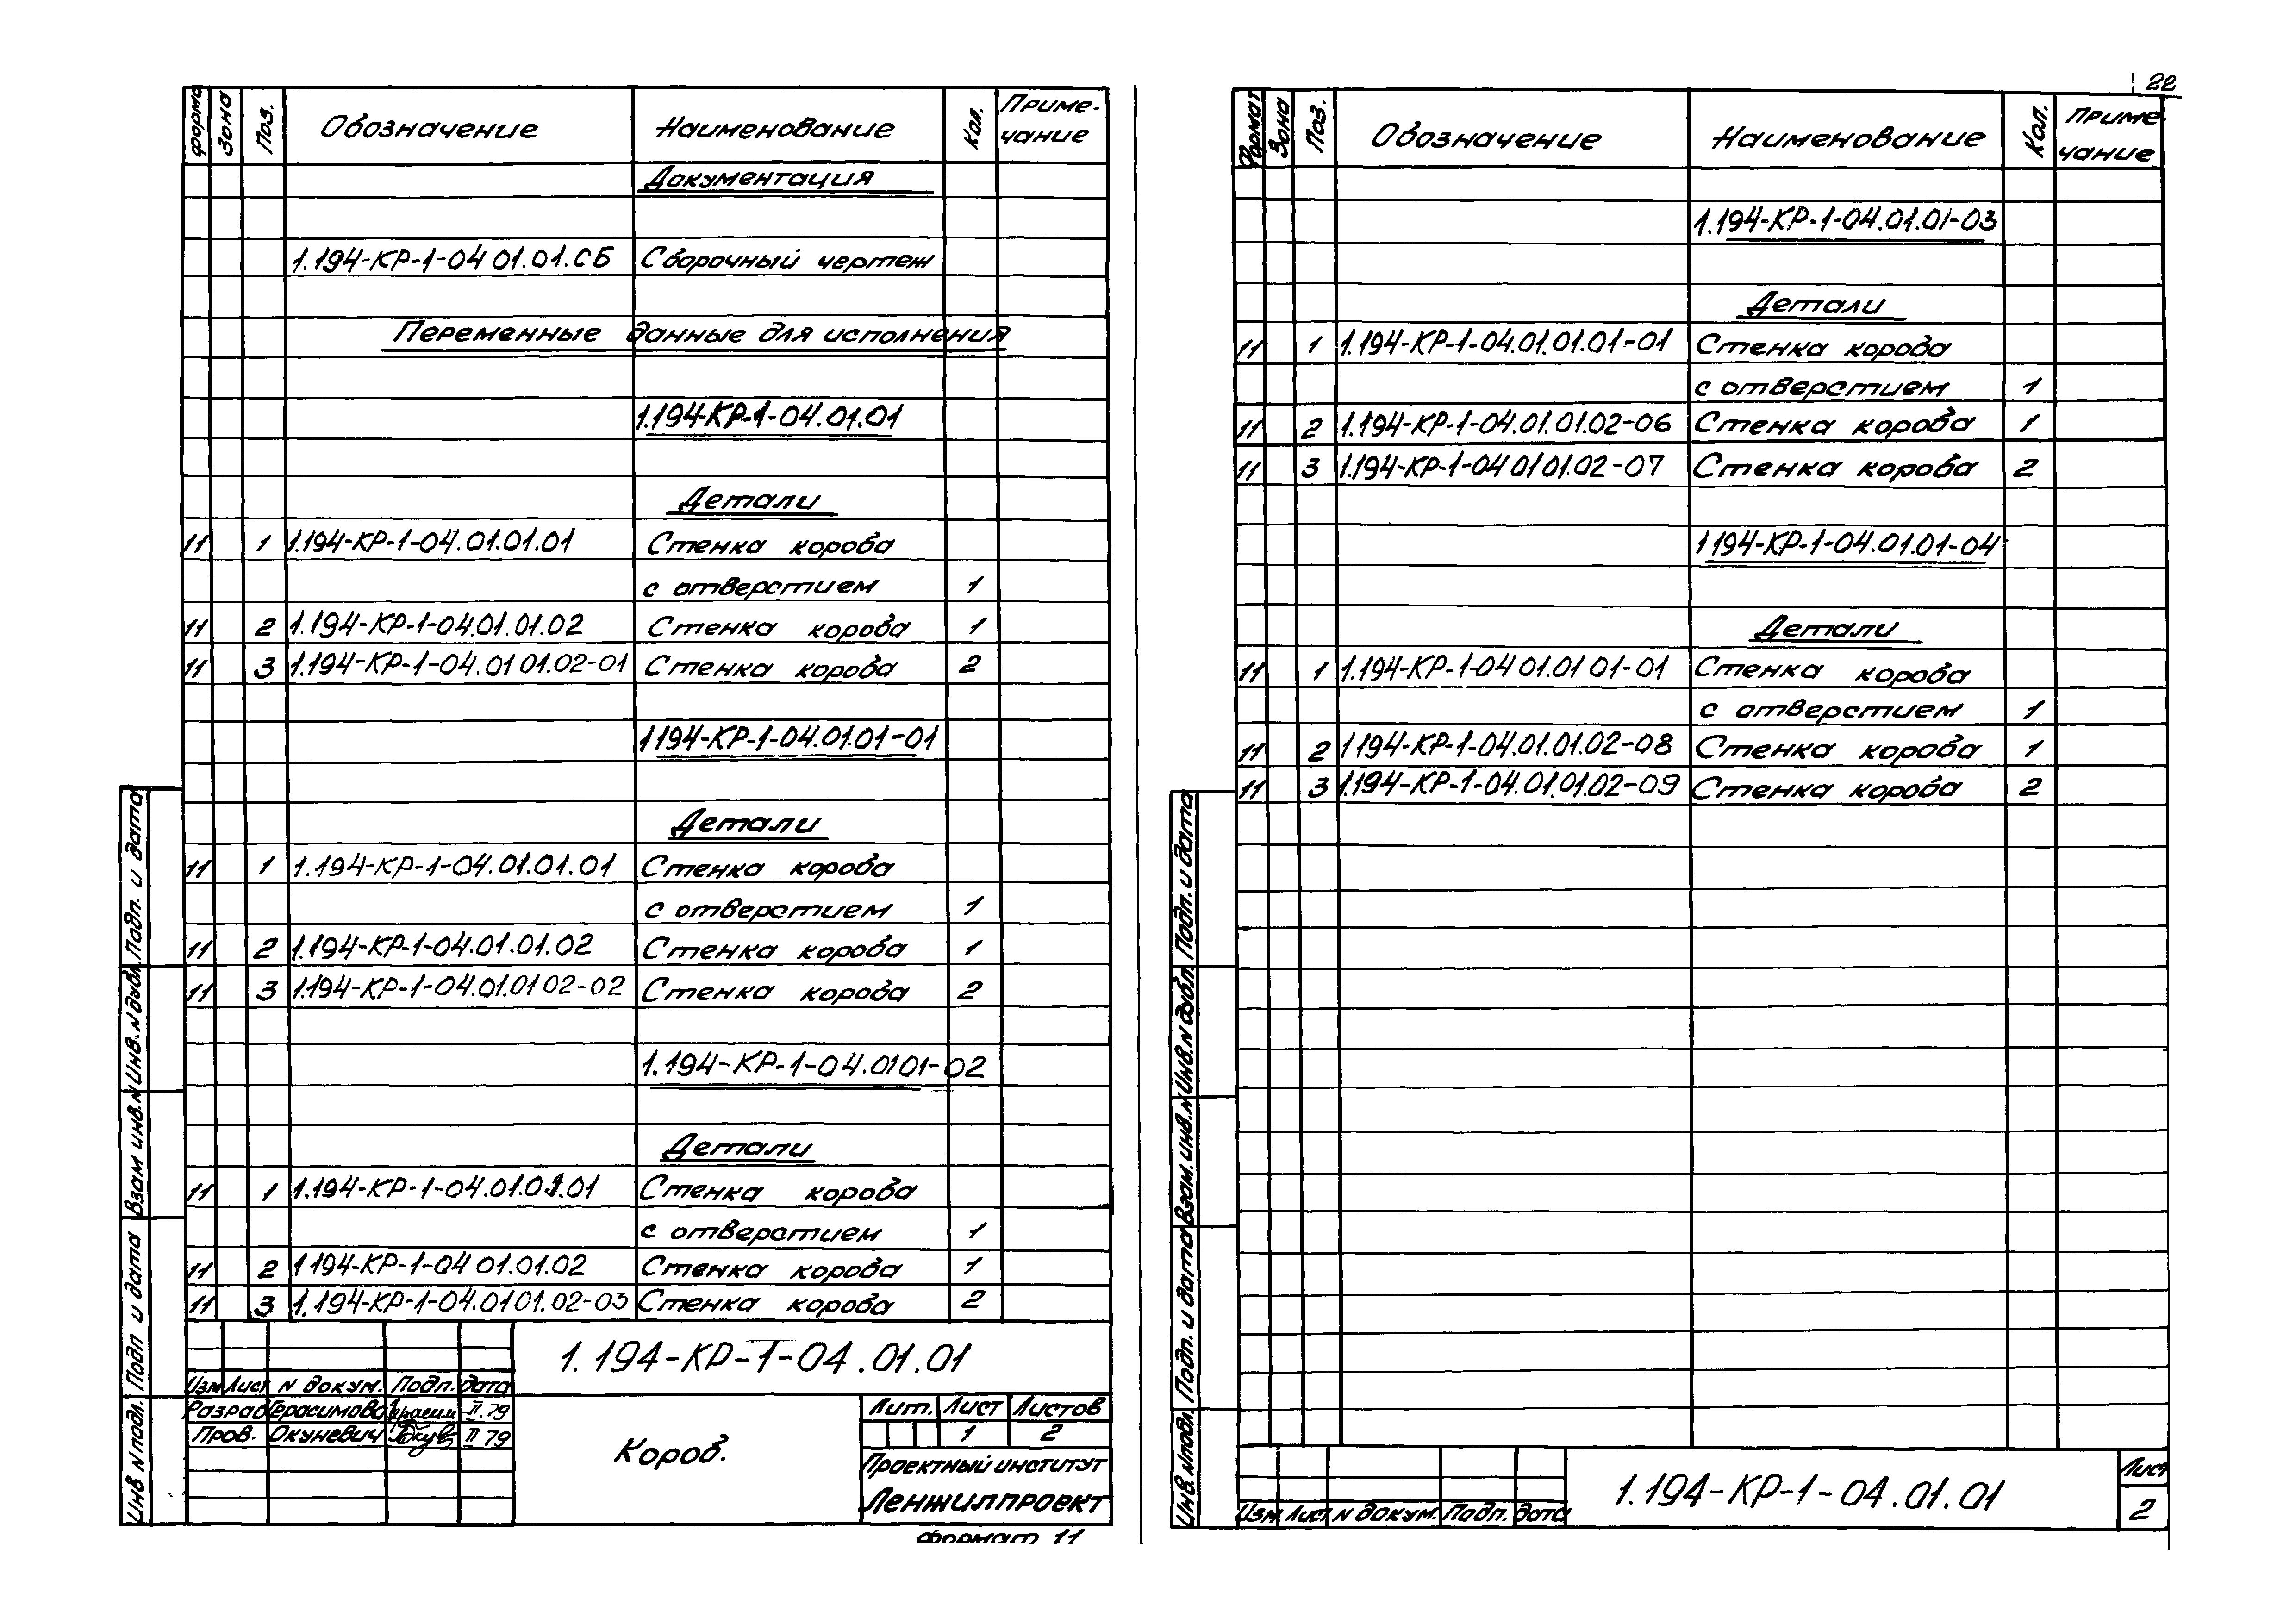 22
Форма Зона Поз. Обозначение Наименование Кол. Приме-
чание
Документация
1.194-КР-1-04 01.01.СБ Сборочный чертеж
Переменные данные для исполнения
1.194-КР-1-04.01.01
Детали
11 1 1.194-КР-1-04.01.01.01 Стенка короба
с отверстием 1
11 2 1.194-КР-1-04.01.01.02 Стенка короба 1
11 3 1.194-КР-1-04.01 01.02-01 Стенка короба 2
1 194-КР-1-04.01.01-01
Детали
11 1 1.194-КР-1-04.01.01.01 Стенка короба
с отверстием 1
11 2 1.194-КР-1-04.01.01.02 Стенка короба 1
11 3 1.194-КР-1-04.01.01 02-02 Стенка короба 2
1.194-КР-1-04.01 01-02
Детали
11 1 1.194-КР-1-04.01.01.01 Стенка короба
с отверстием 1
11 2 1 194-КР-1-04 01.01.02 Стенка короба 1
11 3 1.194-КР-1-04.01 01.02-03 Стенка короба 2
Подп. и дата
Инв. N дубл.
Взам инв. N
Подп и дата
Инв N подл.
1.194-КР-1-04.01.01
Изм Лист N докум. Подп. дата
Разраб Герасимова Герасим II.79
Пров. Окуневич Окув II 79
Короб.
Лит. Лист Листов
1 2
Проектный институт
Ленжилпроект
Формат 11
Формат Зона Поз. Обозначение Наименование Кол. Приме-
чание
1.194-КР-1-04.01.01-03
Детали
11 1 1.194-КР-1-04.01.01.01-01 Стенка короба
с отверстием 1
11 2 1.194-КР-1-04.01.01.02-06 Стенка короба 1
11 3 1.194-КР-1-04 01 01.02-07 Стенка короба 2
1 194-КР-1-04.01.01-04
Детали
11 1 1.194-КР-1-04 01.01 01-01 Стенка короба
с отверстием 1
11 2 1 194-КР-1-04.01.01.02-08 Стенка короба 1
11 3 1.194-КР-1-04.01.01.02-09 Стенка короба 2
Подп. и дата
Инв. N дубл.
Взам. инв. N
Подп. и дата
Инв. N подл.
Изм Лист N докум. Подп. дата
1.194-КР-1-04.01.01
Лист
2